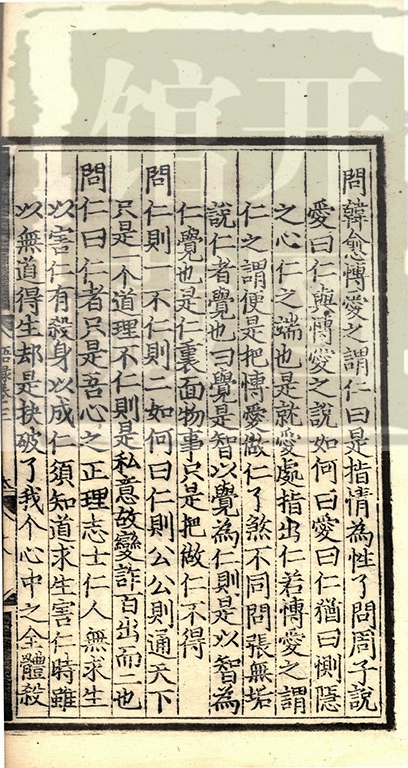 問韓愈博愛之謂仁曰是指情為性了問周子說
愛曰仁與博愛之說如何曰愛曰仁猶曰惻隱
之心仁之端也是就愛處指出仁若博愛之謂
仁之謂便是把博愛做仁了煞不同問張無垢
說仁者覺也曰覺是智以覺為仁則是以智為
仁覺也是仁裏面物事只是把做仁不得
問仁則一不仁則二如何曰仁則公公則通天下
只是一个道理不仁則是私意故變詐百出而二也
問仁曰仁者只是吾心之正理志士仁人無求生
以害仁有殺身以成仁須知道求生害仁時雖
以無道得生却是抉破了我个心中之全體殺
語錄卷三
开
馆